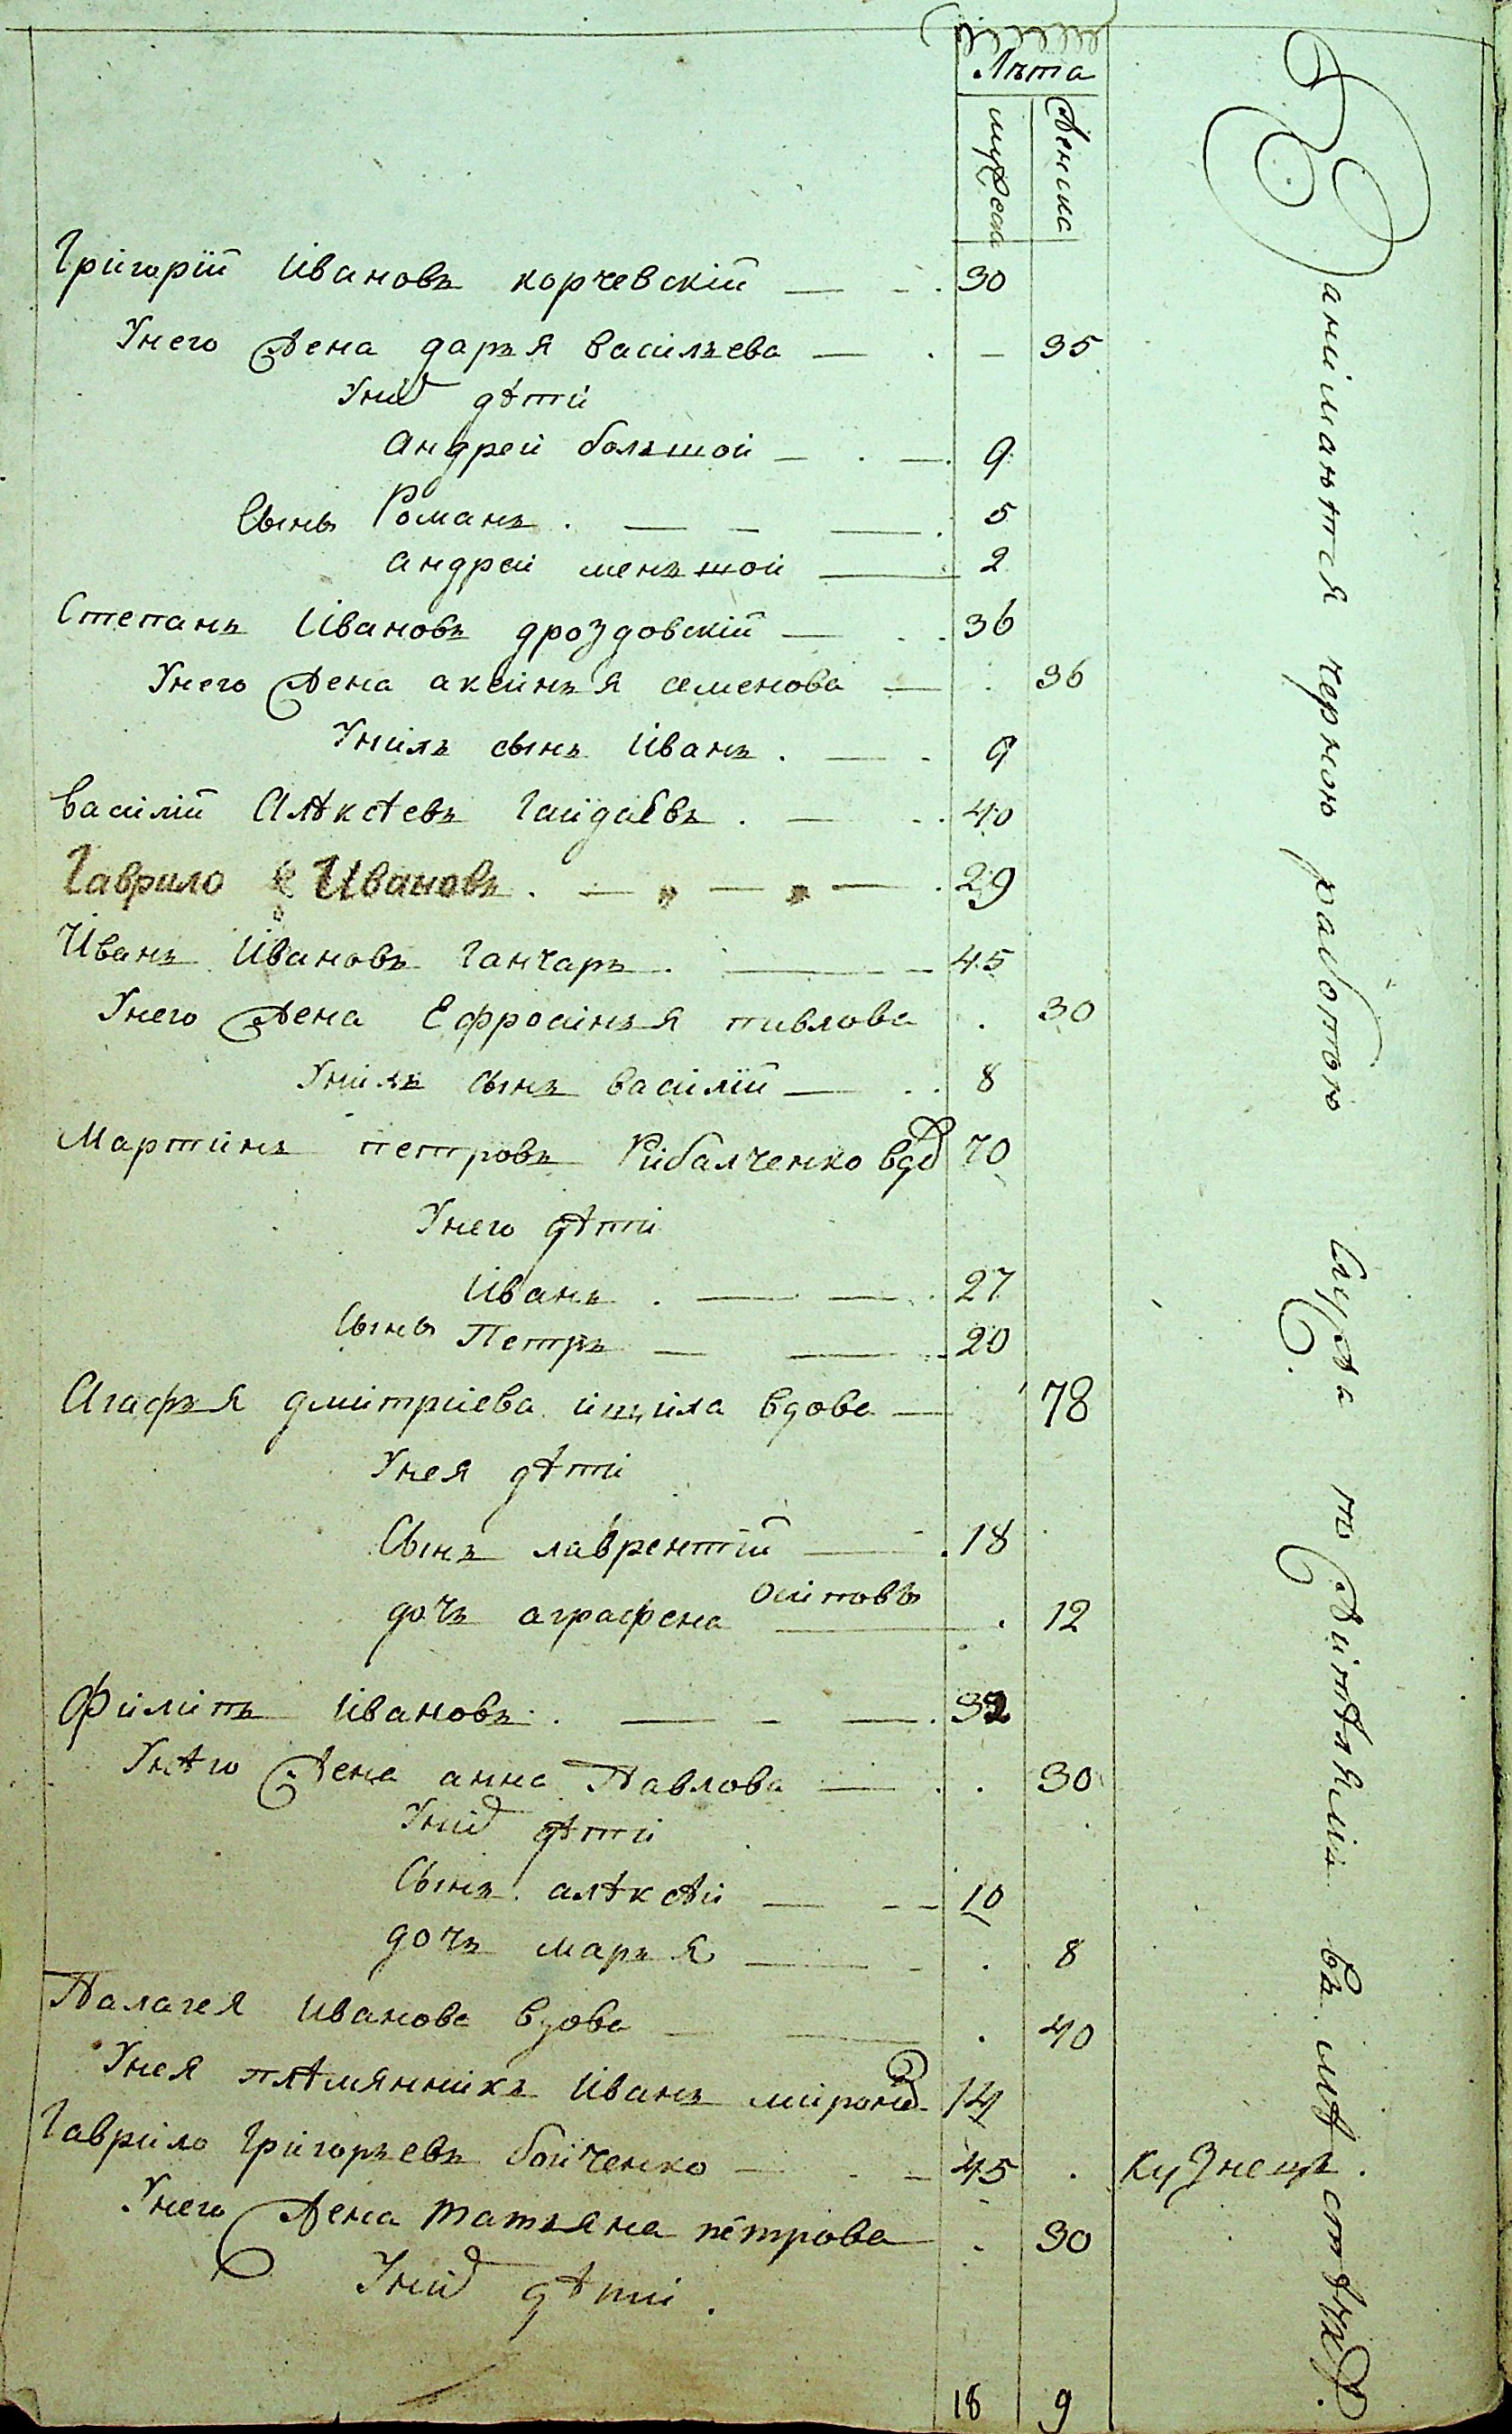 Лѣта
мужеска
женска
Григорїй Ивановъ корчевскїй 30
Унего жена дарья васильева 35
Уних дѣти
Андрей большой 9
Сыны Романъ 5
андрей меньшой 2
Степанъ Ивановъ дроздовскїй 36
Унего жена аксинья семенова 36
Унихъ сынъ Иванъ 9
Василїй Алѣксѣевъ Гайдаевъ 40
Гаврило Ивановъ 29
Иванъ Ивановъ Ганчаръ 45
Унего жена Ефросинья павлова 30
Унихъ сынъ василїй 8
Мартинъ петровъ Рибалченко вдов 70
Унего дѣти
Иванъ 27
Сыны Петръ 20
Агафья дмитриева вдова 78
Унея дѣти
Сынъ лаврентїй 18
Осиповы
дочь аграфена 12
Филипъ Ивановъ 32
Унѣго жена анна Павлова 30
Уних дѣти
Сынъ алѣксѣй 10
дочь марья 8
Палагея Иванова вдова 40
Унея плѣмянникъ Иванъ миронов 14
Гаврило Григорьевъ бойченко 45 кузнецъ
Унего жена татьяна петрова 30
Уних дѣти
18 9
Занимаются черною работою служа по жителями въ мѣстѣчках